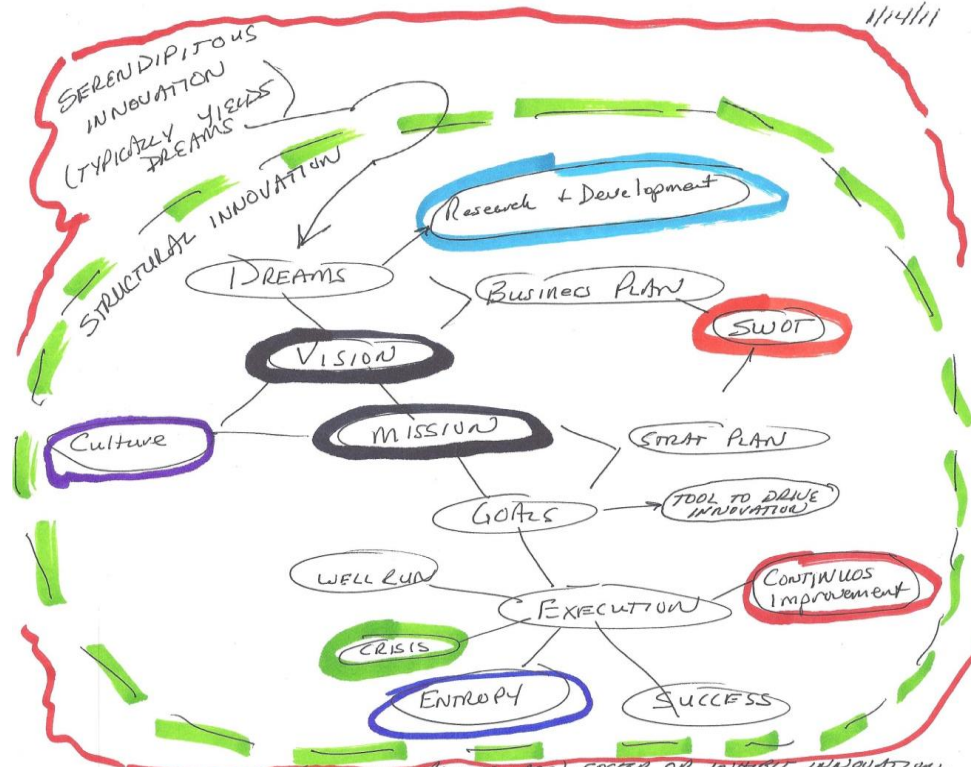 1/14/11
SERENDIPITOUS
INNOVATION
(TYPICALLY YIELDS
DREAMS
STRUCTURAL INNOVATION
Research + Development
DREAMS
BUSINESS PLAN
SWOT
VISION
Culture
MISSION
STRAT PLAN
GOALS
TOOL TO DRIVE
INNOVATION
WELL RUN
CONTINUOS
IMPROVEMENT
EXECUTION
CRISIS
ENTROPY
SUCCESS
FOSTER OR INHIBIT INNOVATION